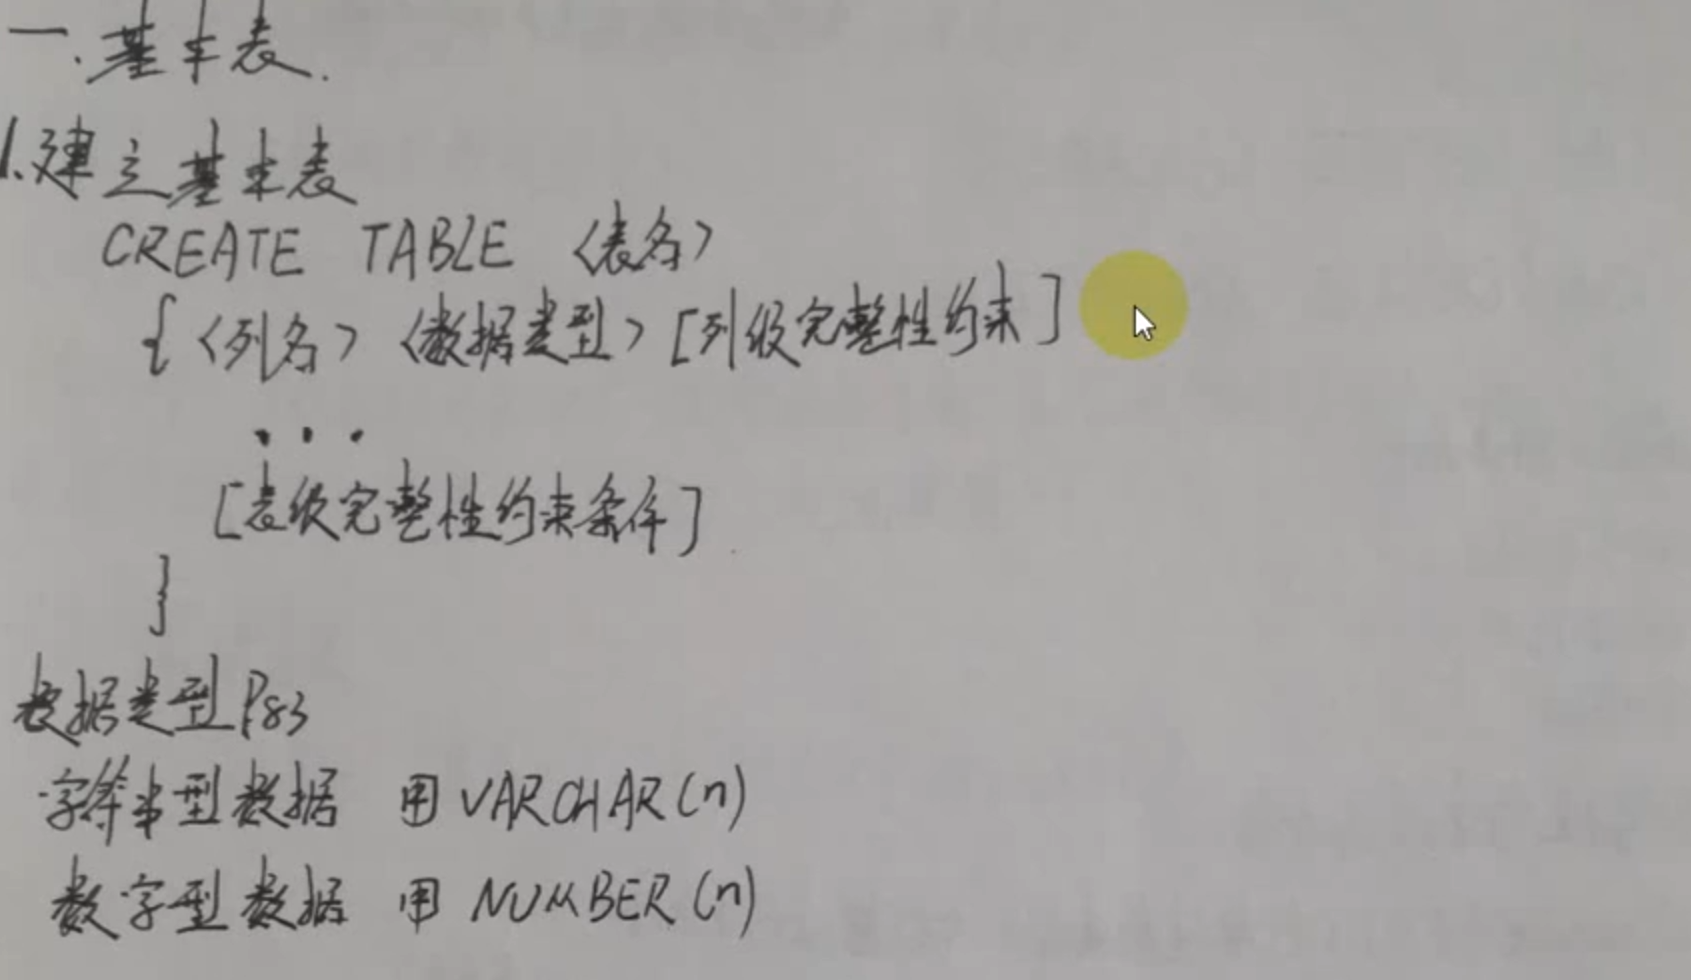 一.基本表.
1.建立基本表
CREATE TABLE <表名>
{<列名> <数据类型> [列级完整性约束]
...
[表级完整性约束条件]
}
数据类型 P83
字符串型数据 用 VARCHAR(n)
数字型数据 用 NUMBER(n)